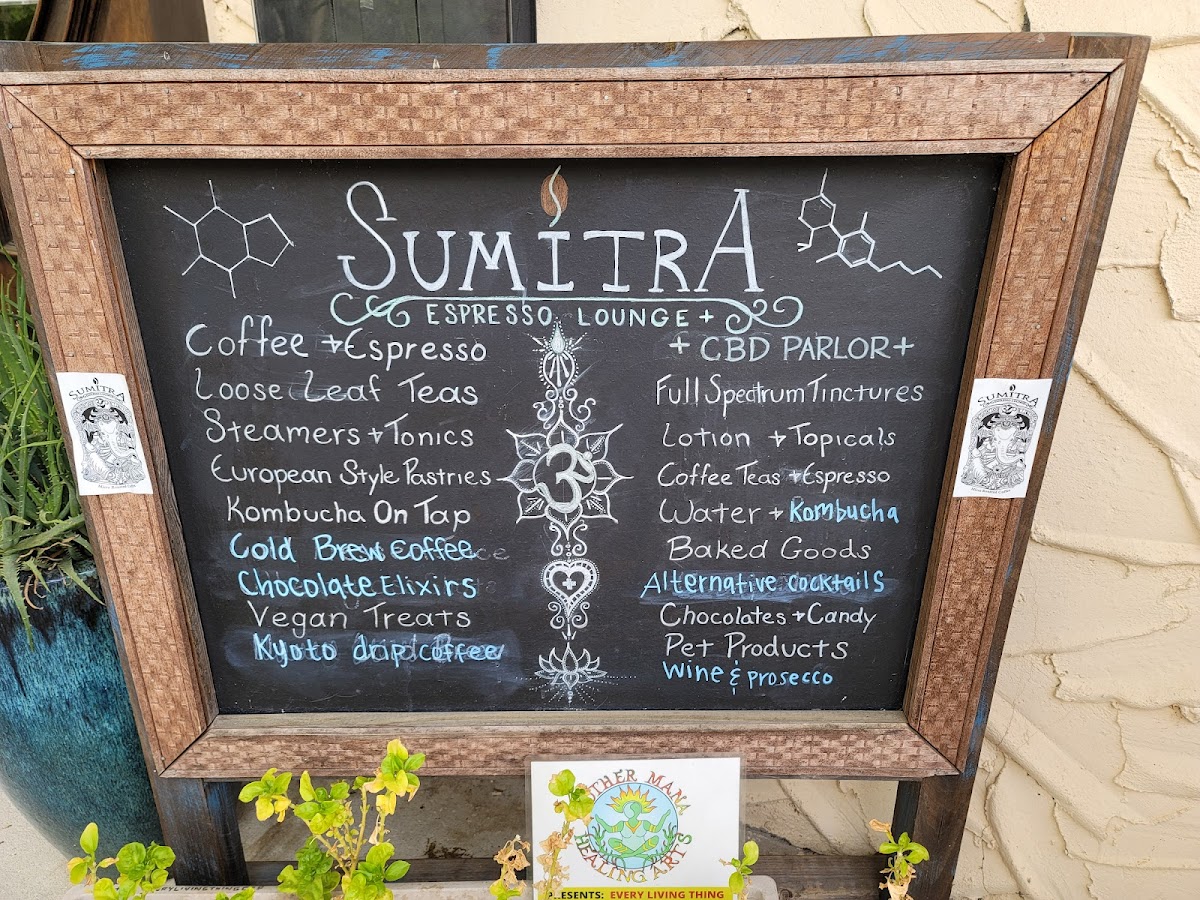 SUMITRA
ESPRESSO LOUNGE +
Coffee + Espresso
Loose Leaf Teas
Steamers + Tonics
European Style Pastries
Kombucha On Tap
Cold Brew Coffee
Chocolate Elixirs
Vegan Treats
Kyoto drip coffee
+ CBD PARLOR +
Full Spectrum Tinctures
Lotion + Topicals
Coffee Teas + Espresso
Water + Kombucha
Baked Goods
Alternative cocktails
Chocolates + Candy
Pet Products
Wine & prosecco
ॐ
SUMITRA
SUMITRA
MANA
HEALING ARTS
EVERY LIVING THING